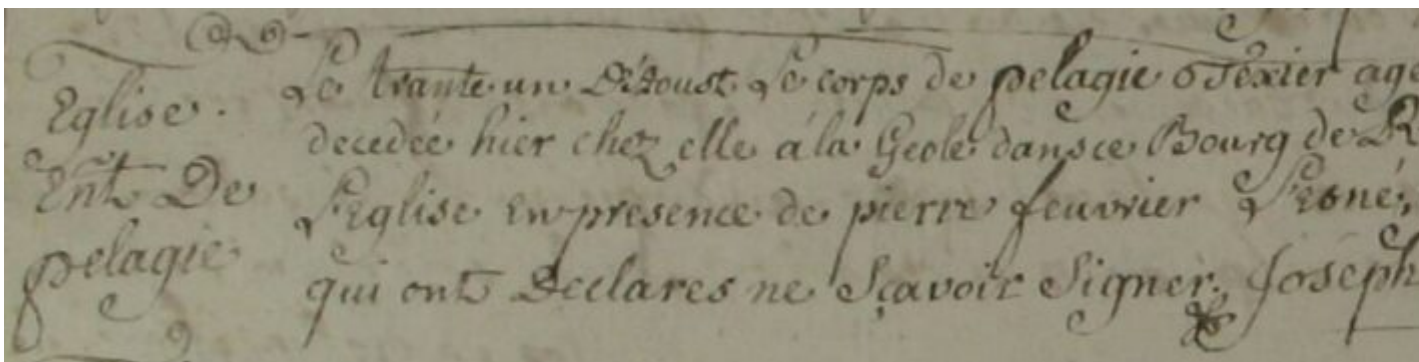 Eglise.
Ent De
pelagie
Le trante un D'Aoust Le corps de pelagie Texier agé
decedée hier chez elle a la Geole dans ce Bourg de R
L'Eglise en presence de pierre feuvrier L'esné,
qui ont Declares ne Sçavoir Signer. Joseph